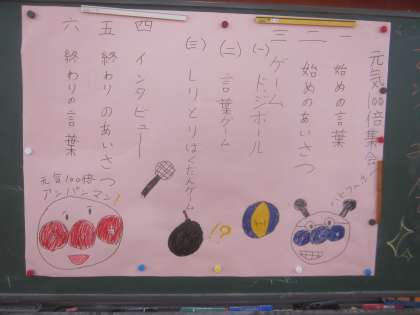 元気100倍集会
一 始めの言葉
二 始めのあいさつ
三 ゲーム
(一) ドッジボール
(二) 言葉ゲーム
(三) しりとりばくだんゲーム
四 インタビュー
五 終わりのあいさつ
六 終わりの言葉
!?
元気100倍
アンパンマン!